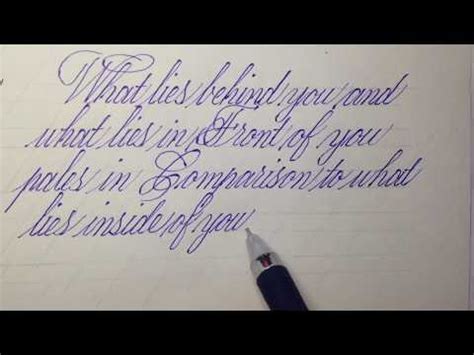 What lies behind you and
what lies in Front of you
pales in Comparison to what
lies inside of you